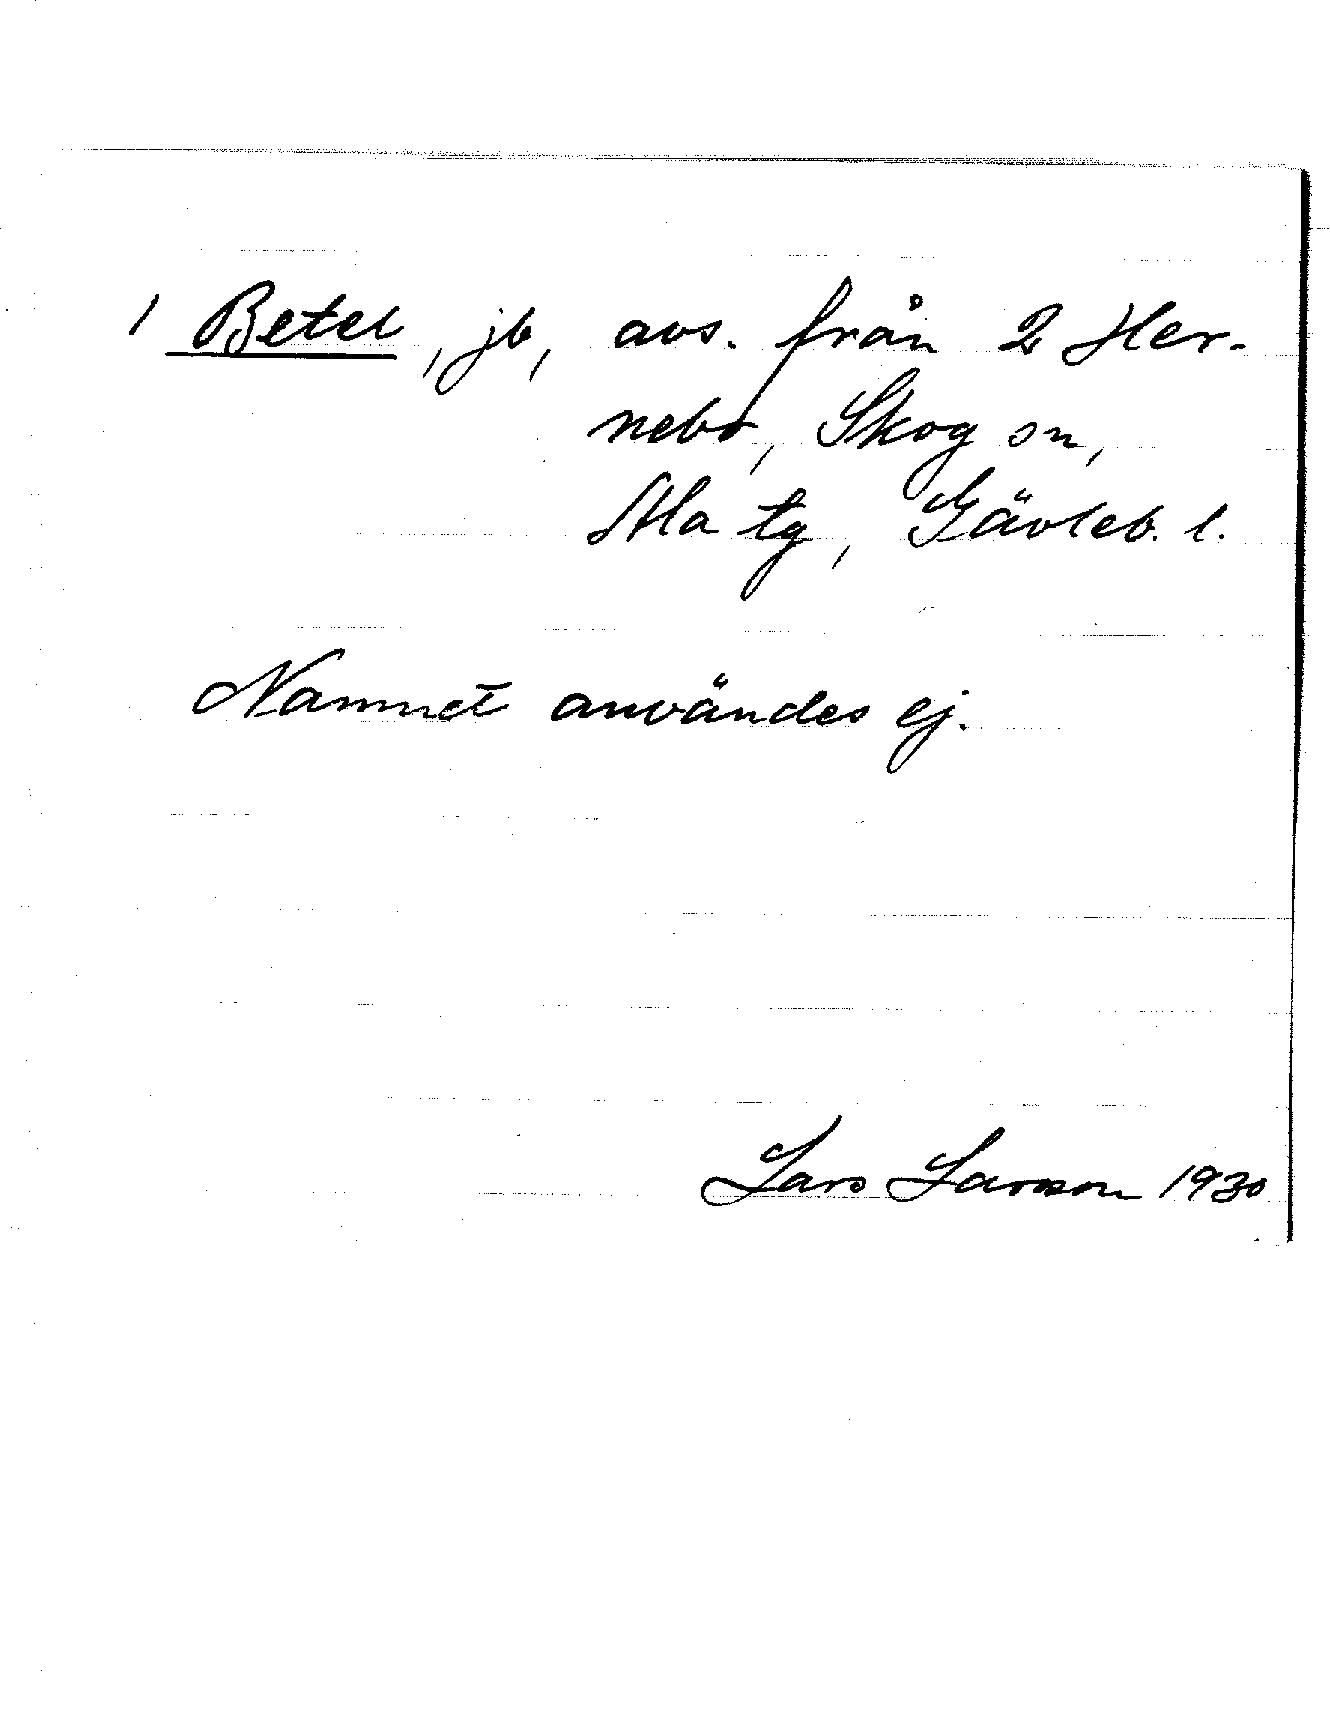 1 Betel, jb, avs. från 2 Her-
nebo, Skog sn,
Ala tg, Gävleb. l.
Namnet användes ej.
Lars Larsson 1930